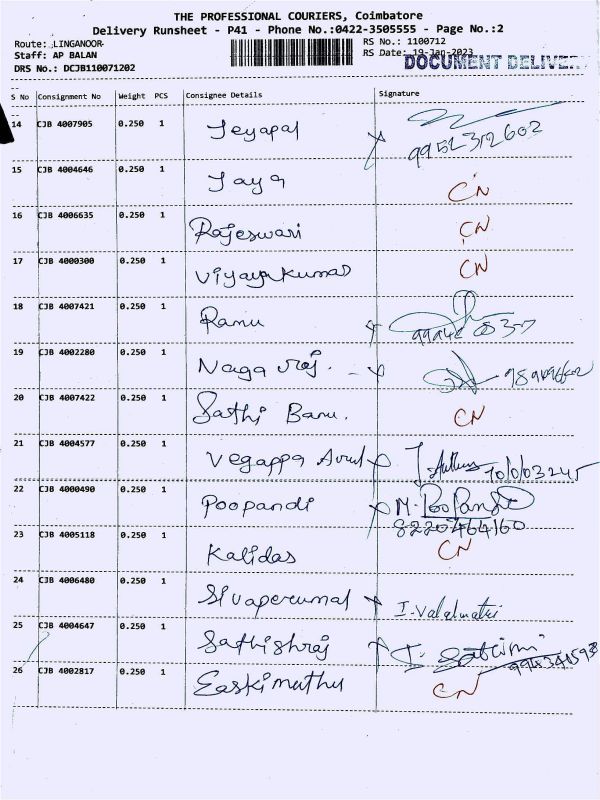 THE PROFESSIONAL COURIERS, Coimbatore
Delivery Runsheet - P41 - Phone No.:0422-3505555 - Page No.:2
Route: LINGANOOR
Staff: AP BALAN
DRS No.: DCJB110071202
RS No.: 1100712
RS Date: 19-Jan-2023
DOCUMENT DELIVE
S No Consignment No Weight PCS Consignee Details Signature
14 CJB 4007905 0.250 1 Jeyapal 9952312602
15 CJB 4004646 0.250 1 Jaya CN
16 CJB 4006635 0.250 1 Rajeswari CN
17 CJB 4000300 0.250 1 Vijayakumar CN
18 CJB 4007421 0.250 1 Ramu
19 CJB 4002280 0.250 1 Nagaraj.
20 CJB 4007422 0.250 1 Sathi Banu. CN
21 CJB 4004577 0.250 1 Vegappa Arul
22 CJB 4000490 0.250 1 Poopandi M. Poopandi
8220464160
23 CJB 4005118 0.250 1 Kalidas CN
24 CJB 4006480 0.250 1 Sivaperumal I. Valalmatei
25 CJB 4004647 0.250 1 Sathishraj
26 CJB 4002817 0.250 1 Easkimuthu CN